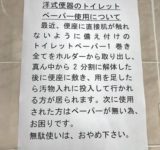 洋式便器のトイレット
ペーパー使用について
最近、便座に直接肌が触れ
ないように備え付けの
トイレットペーパー1巻き
全てをホルダーから取り出し、
真ん中から2分割に解体した
後に便座に敷き、用を足した
ら汚物入れに投入して行かれ
る方が居られます。次に使用
された方はペーパーが無い為、
お困りです。
無駄使いは、おやめ下さい。